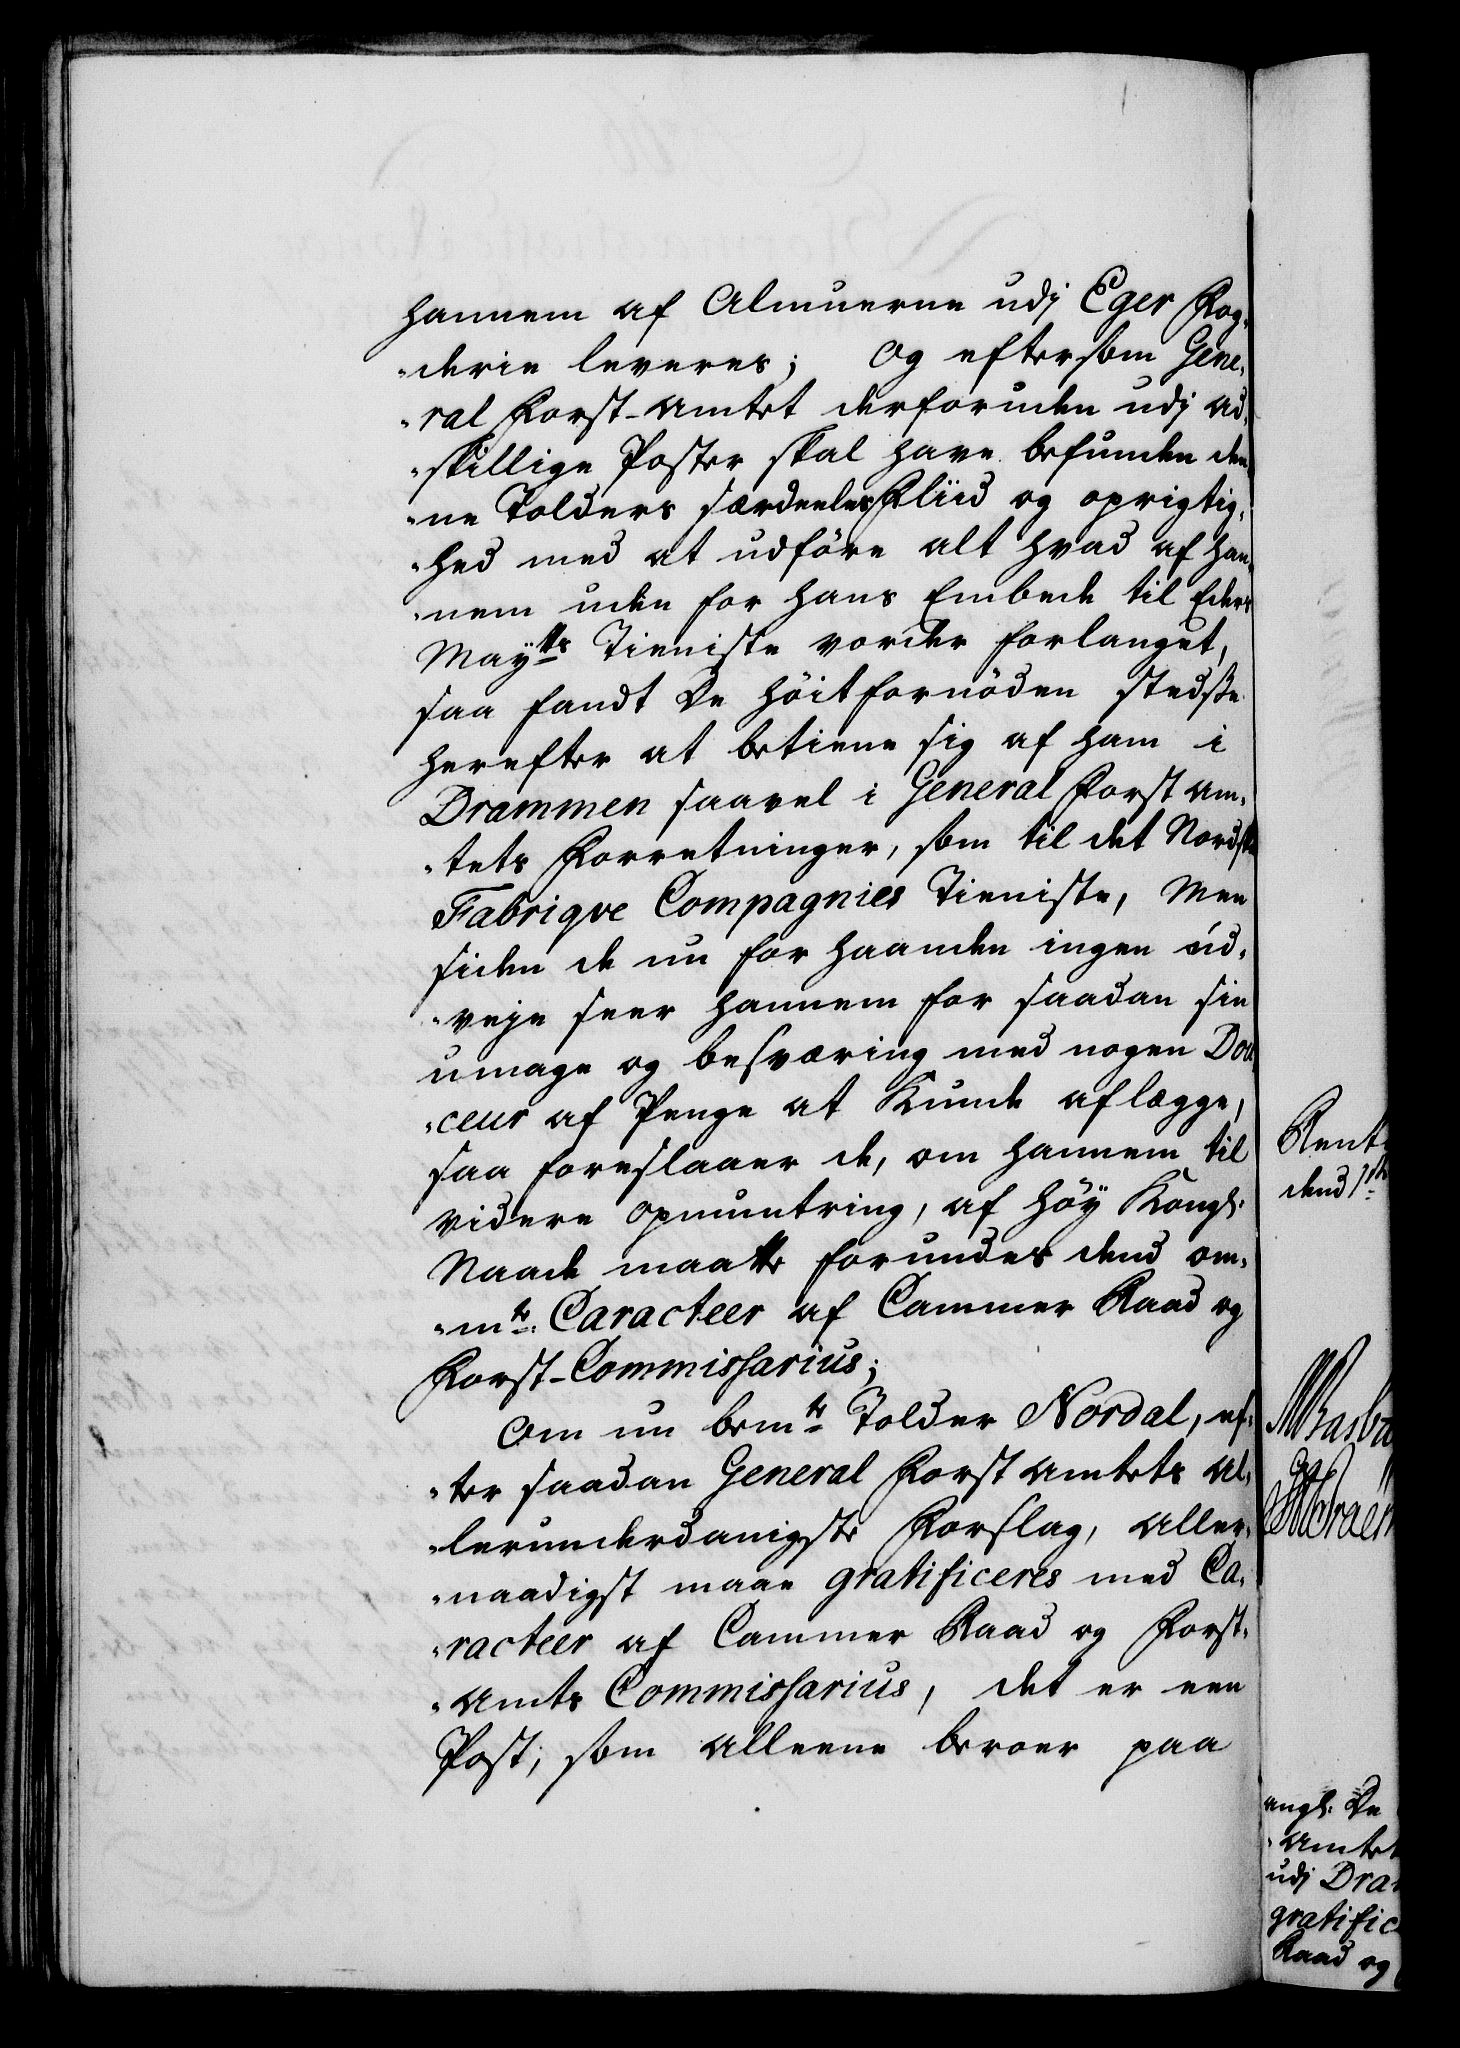 hannem af Almuerne udj Eger Fog-
-derie leveres; og eftersom Gene-
-ral Forst-Amtet derforuden udj ad-
-skillige Poster skal have befunden den-
-ne Tolders særdeeles Fliid og oprigtig-
-hed med at udföre alt hvad af han-
-nem uden for hans Embede til Eders
Mayts Tieniste vorder forlanget,
saa fandt De höitfornöden stedsse
herefter at betiene sig af ham i
Drammen saavel i General Forst Am-
-tets Forretninger, som til det Nordske
Fabriqve Compagnies Tieniste, Men
siden de nu for haanden ingen ud-
-veje seer hannem for saadan sin
umage og besværing med nogen Dou-
-ceur af Penge at Kunde aflægge,
saa foreslaaer de, om hannem til
videre opmuntring, af höy Kongl.
Naade maatte forundes dend om-
-mte Caracteer af Cammer Raad og
Forst-Commissarius;
Om nu bemte Tolder Nordal, ef-
-ter saadan General Forst Amtets Al-
-lerunderdanigste Forslag, Aller-
-naadigst maae gratificeres med Ca-
-racteer af Cammer Raad og Forst-
-Amts Commissarius, det er een
Post, som Alleene beroer paa
Rent
dend 1ste
angl. De
-Amtet
udj Dra
gratific
Raad og